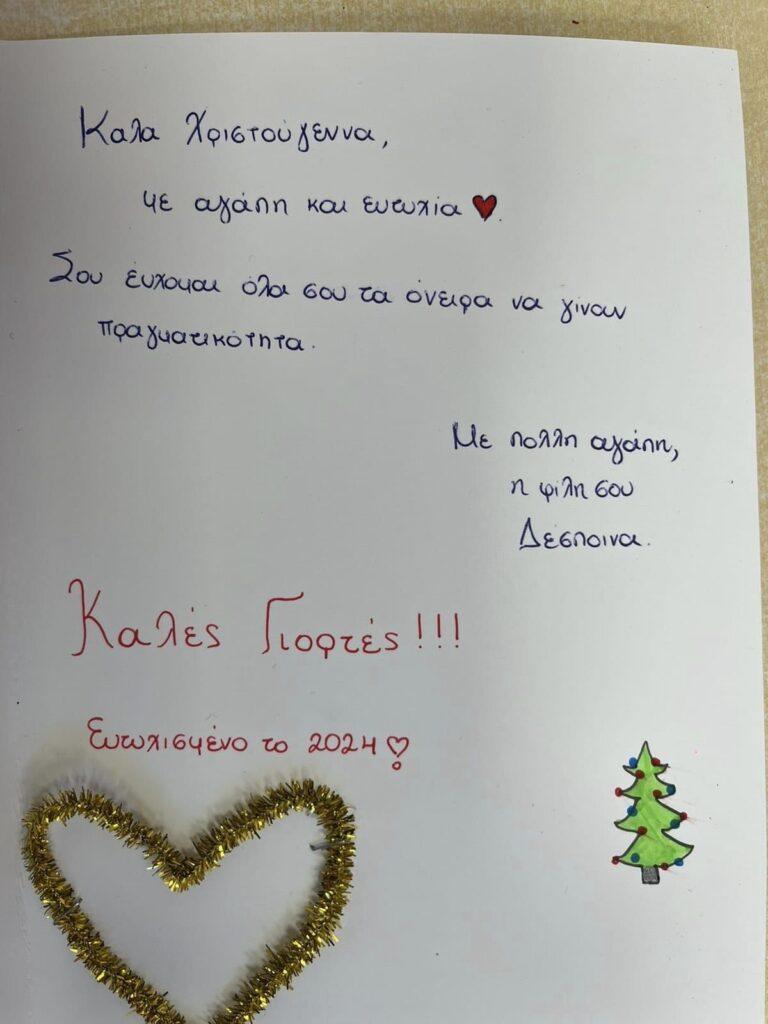 Καλα Χριστούγεννα,
με αγάπη και ευτυχία ♥.
Σου εύχομαι όλα σου τα όνειρα να γίνουν
πραγματικότητα.
Με πολλη αγάπη,
η φίλη σου
Δέσποινα.
Καλές Γιορτές!!!
Ευτυχισμένο το 2024♡